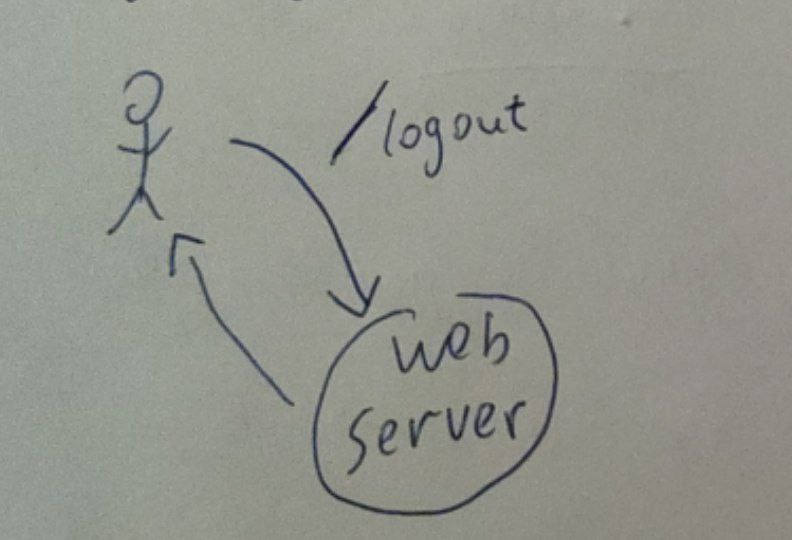 /logout
web
server